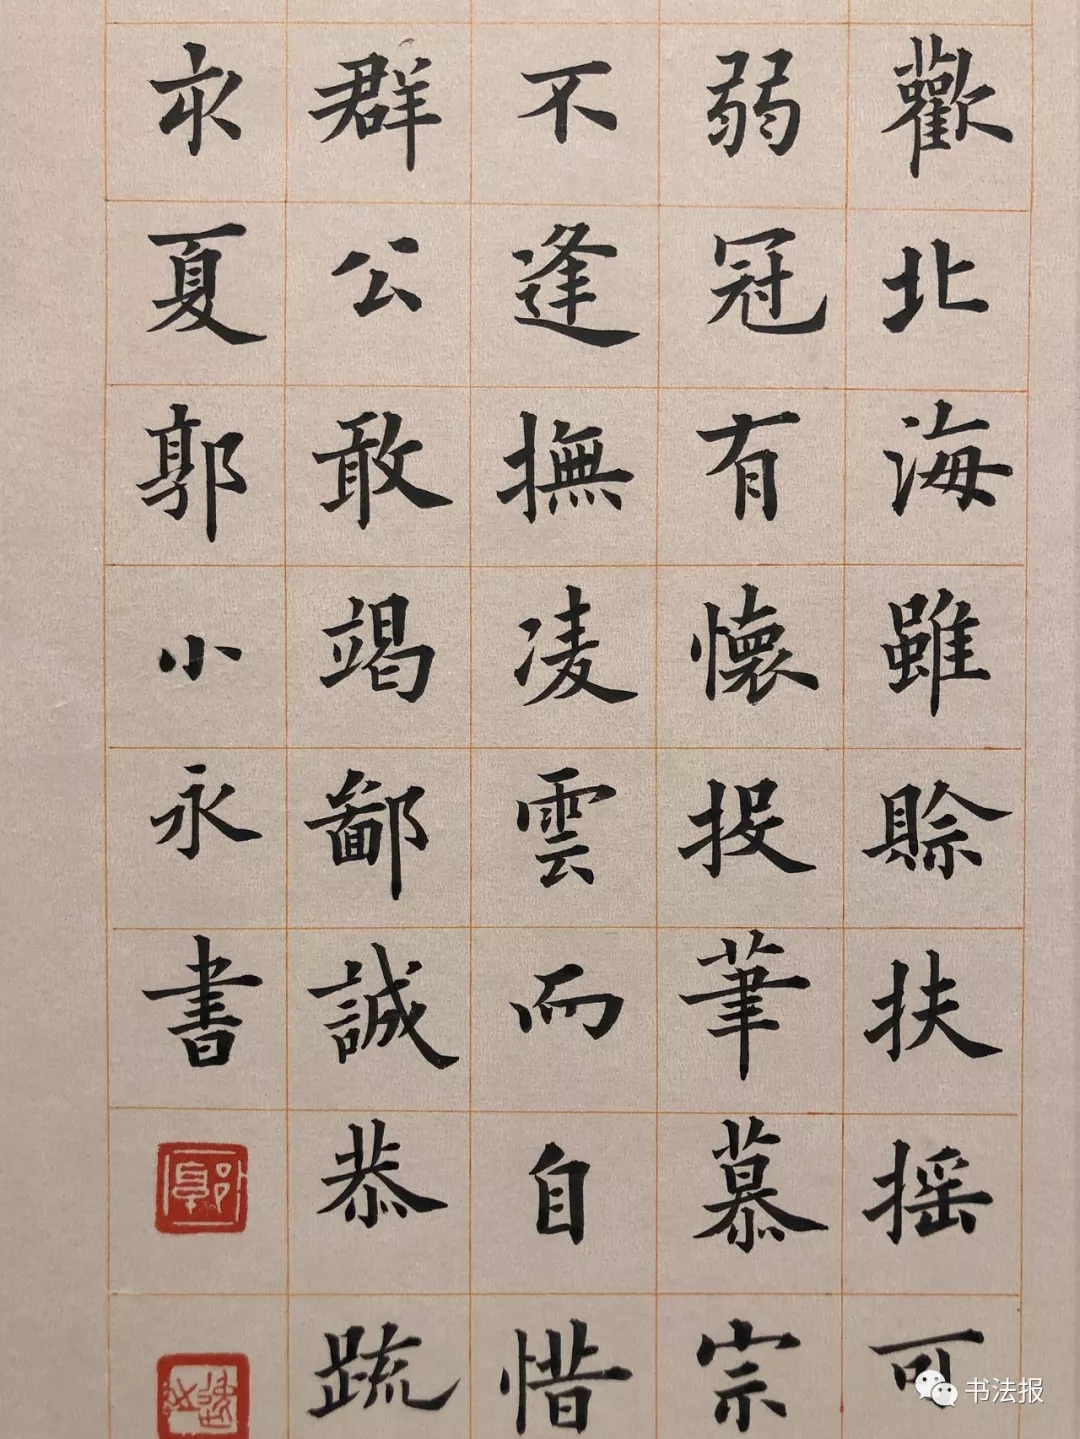 歡北海雖賒扶摇可
弱冠有懷投筆慕宗
不逢撫凌雲而自惜
群公敢竭鄙誠恭疏
夏郭小永書
书法报